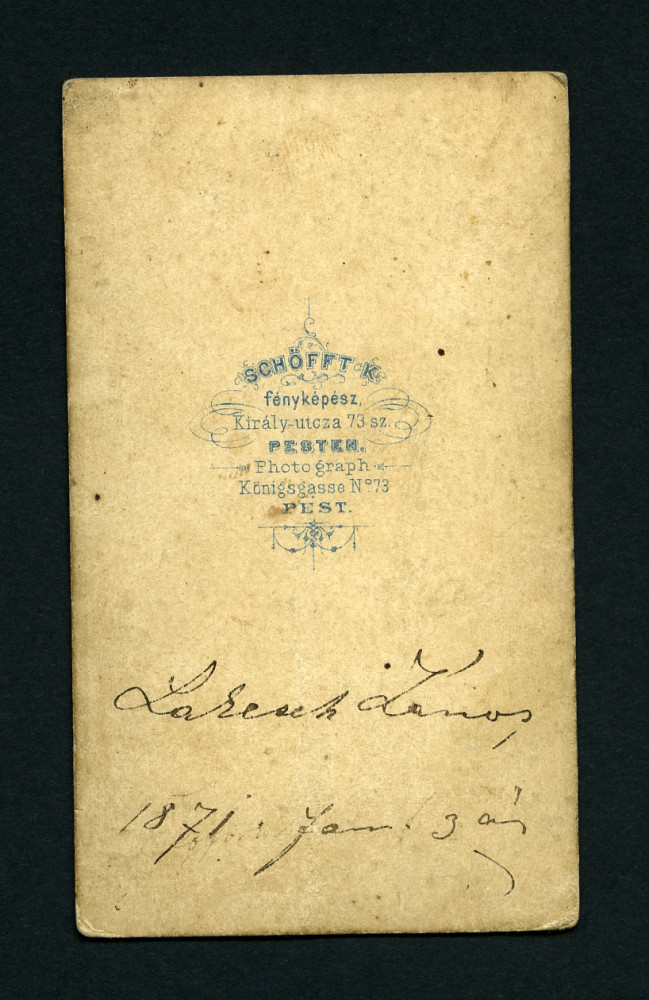 SCHÖFFT K.
fényképész,
Király-utcza 73 sz.
PESTEN.
Photograph
Königsgasse Nº 73
PEST.
János
1871. Jan. 3 án